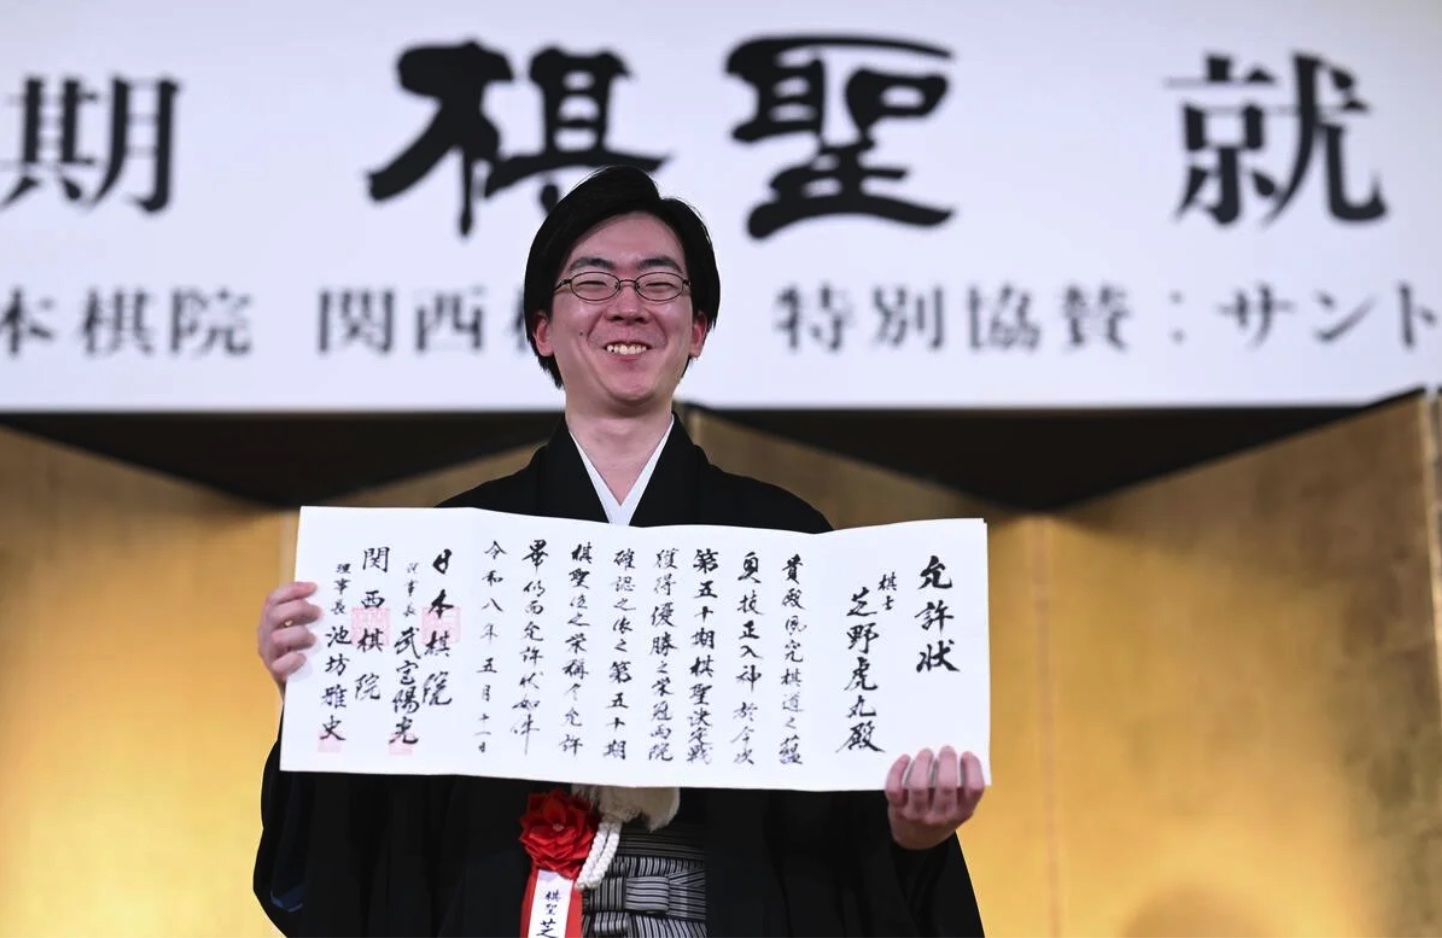 期 棋聖 就
本棋院 関西 特別協賛：サント
允許状
棋士 芝野虎丸殿
貴殿夙究棋道之蘊
奥技正入神於今次
第五十期棋聖決定戦
獲得優勝之栄冠両院
確認之依之第五十期
棋聖位之栄称令允許
畢仍而允許状如件
令和八年五月十一日
日本棋院
理事長 武宮陽光
関西棋院
理事長 池坊雅史
棋聖 芝